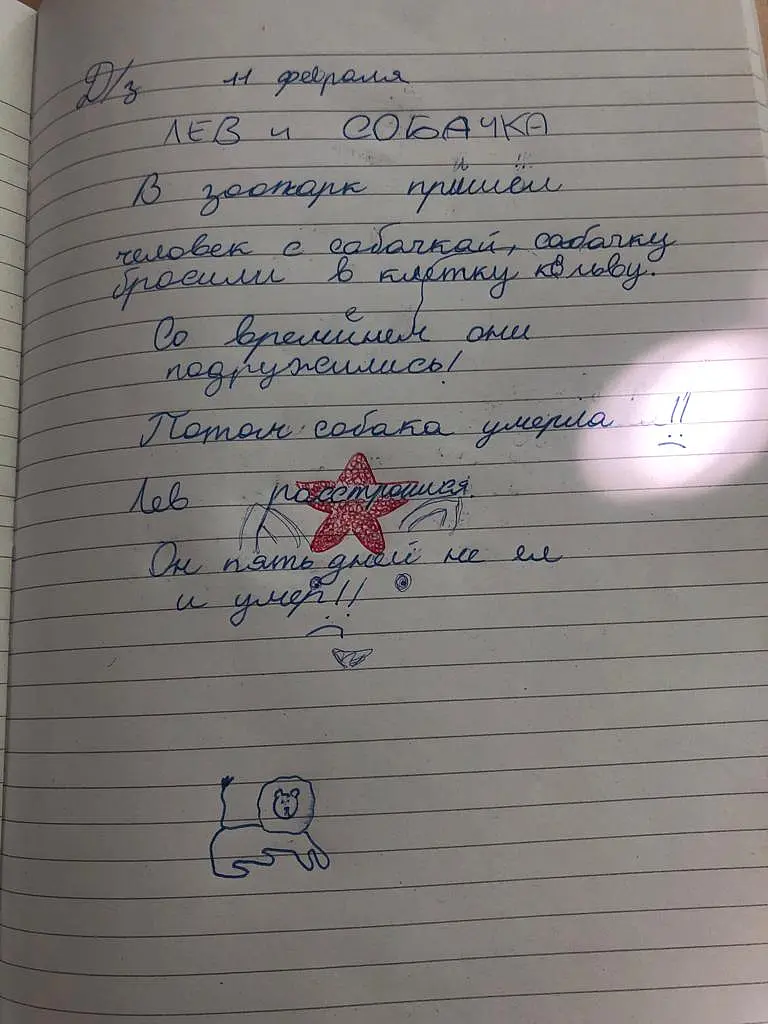 Д/з 11 февраля
ЛЕВ и СОБАЧКА
В зоопарк пришёл
человек с собачкай, собачку
бросили в клетку ко льву.
Со временем они
подружились!
Потом собака умерла !!
Лев расстроился
Он пять дней не ел
и умер!!